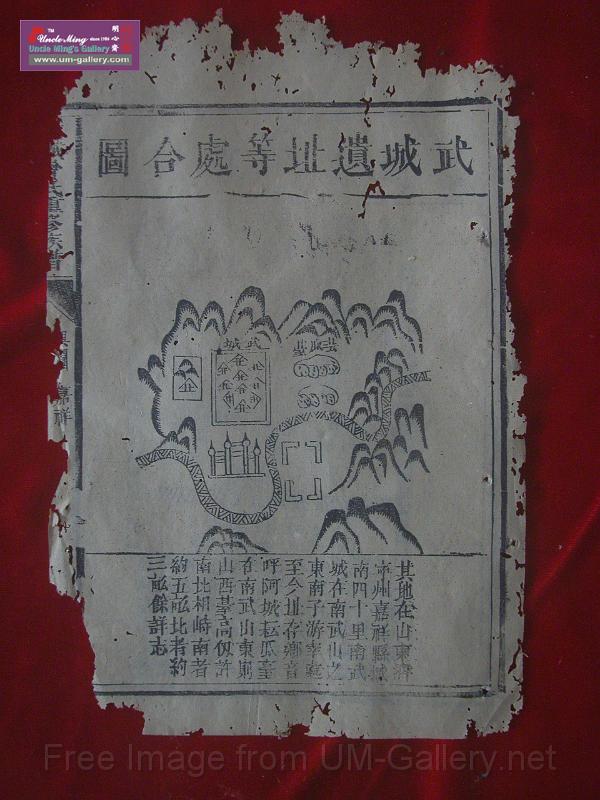 TM
Uncle Ming since 1986
Uncle Ming's Gallery
www.um-gallery.com
明心齋
武城遺址等處合圖
武城
其地在山東濟
寧州嘉祥縣城
南四十里南武
城在南武山之
東南子游宰
至今址存鄉音
呼阿城耘瓜臺
在南武山東則
山西臺高仞許
南北相峙南者
約五畝北者約
三畝餘詳志
Free Image from UM-Gallery.net